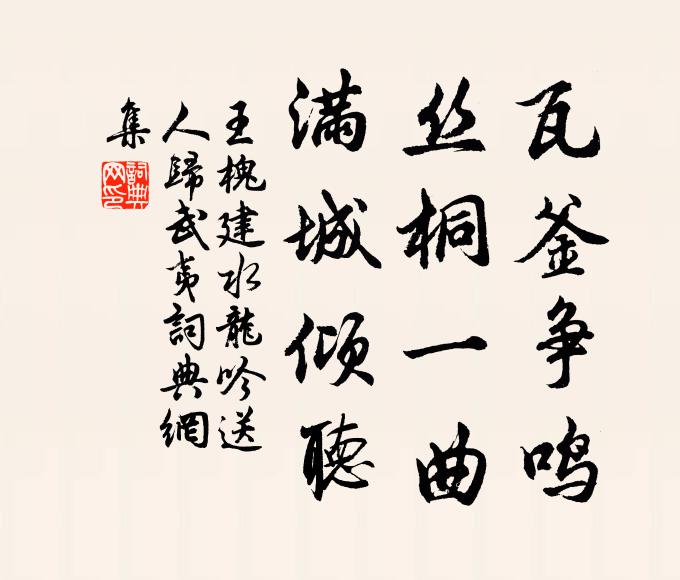 瓦釜争鸣
丝桐一曲
满城倾聽
王槐建水龍吟送
人歸武夷詞典網
集
詞典
网印